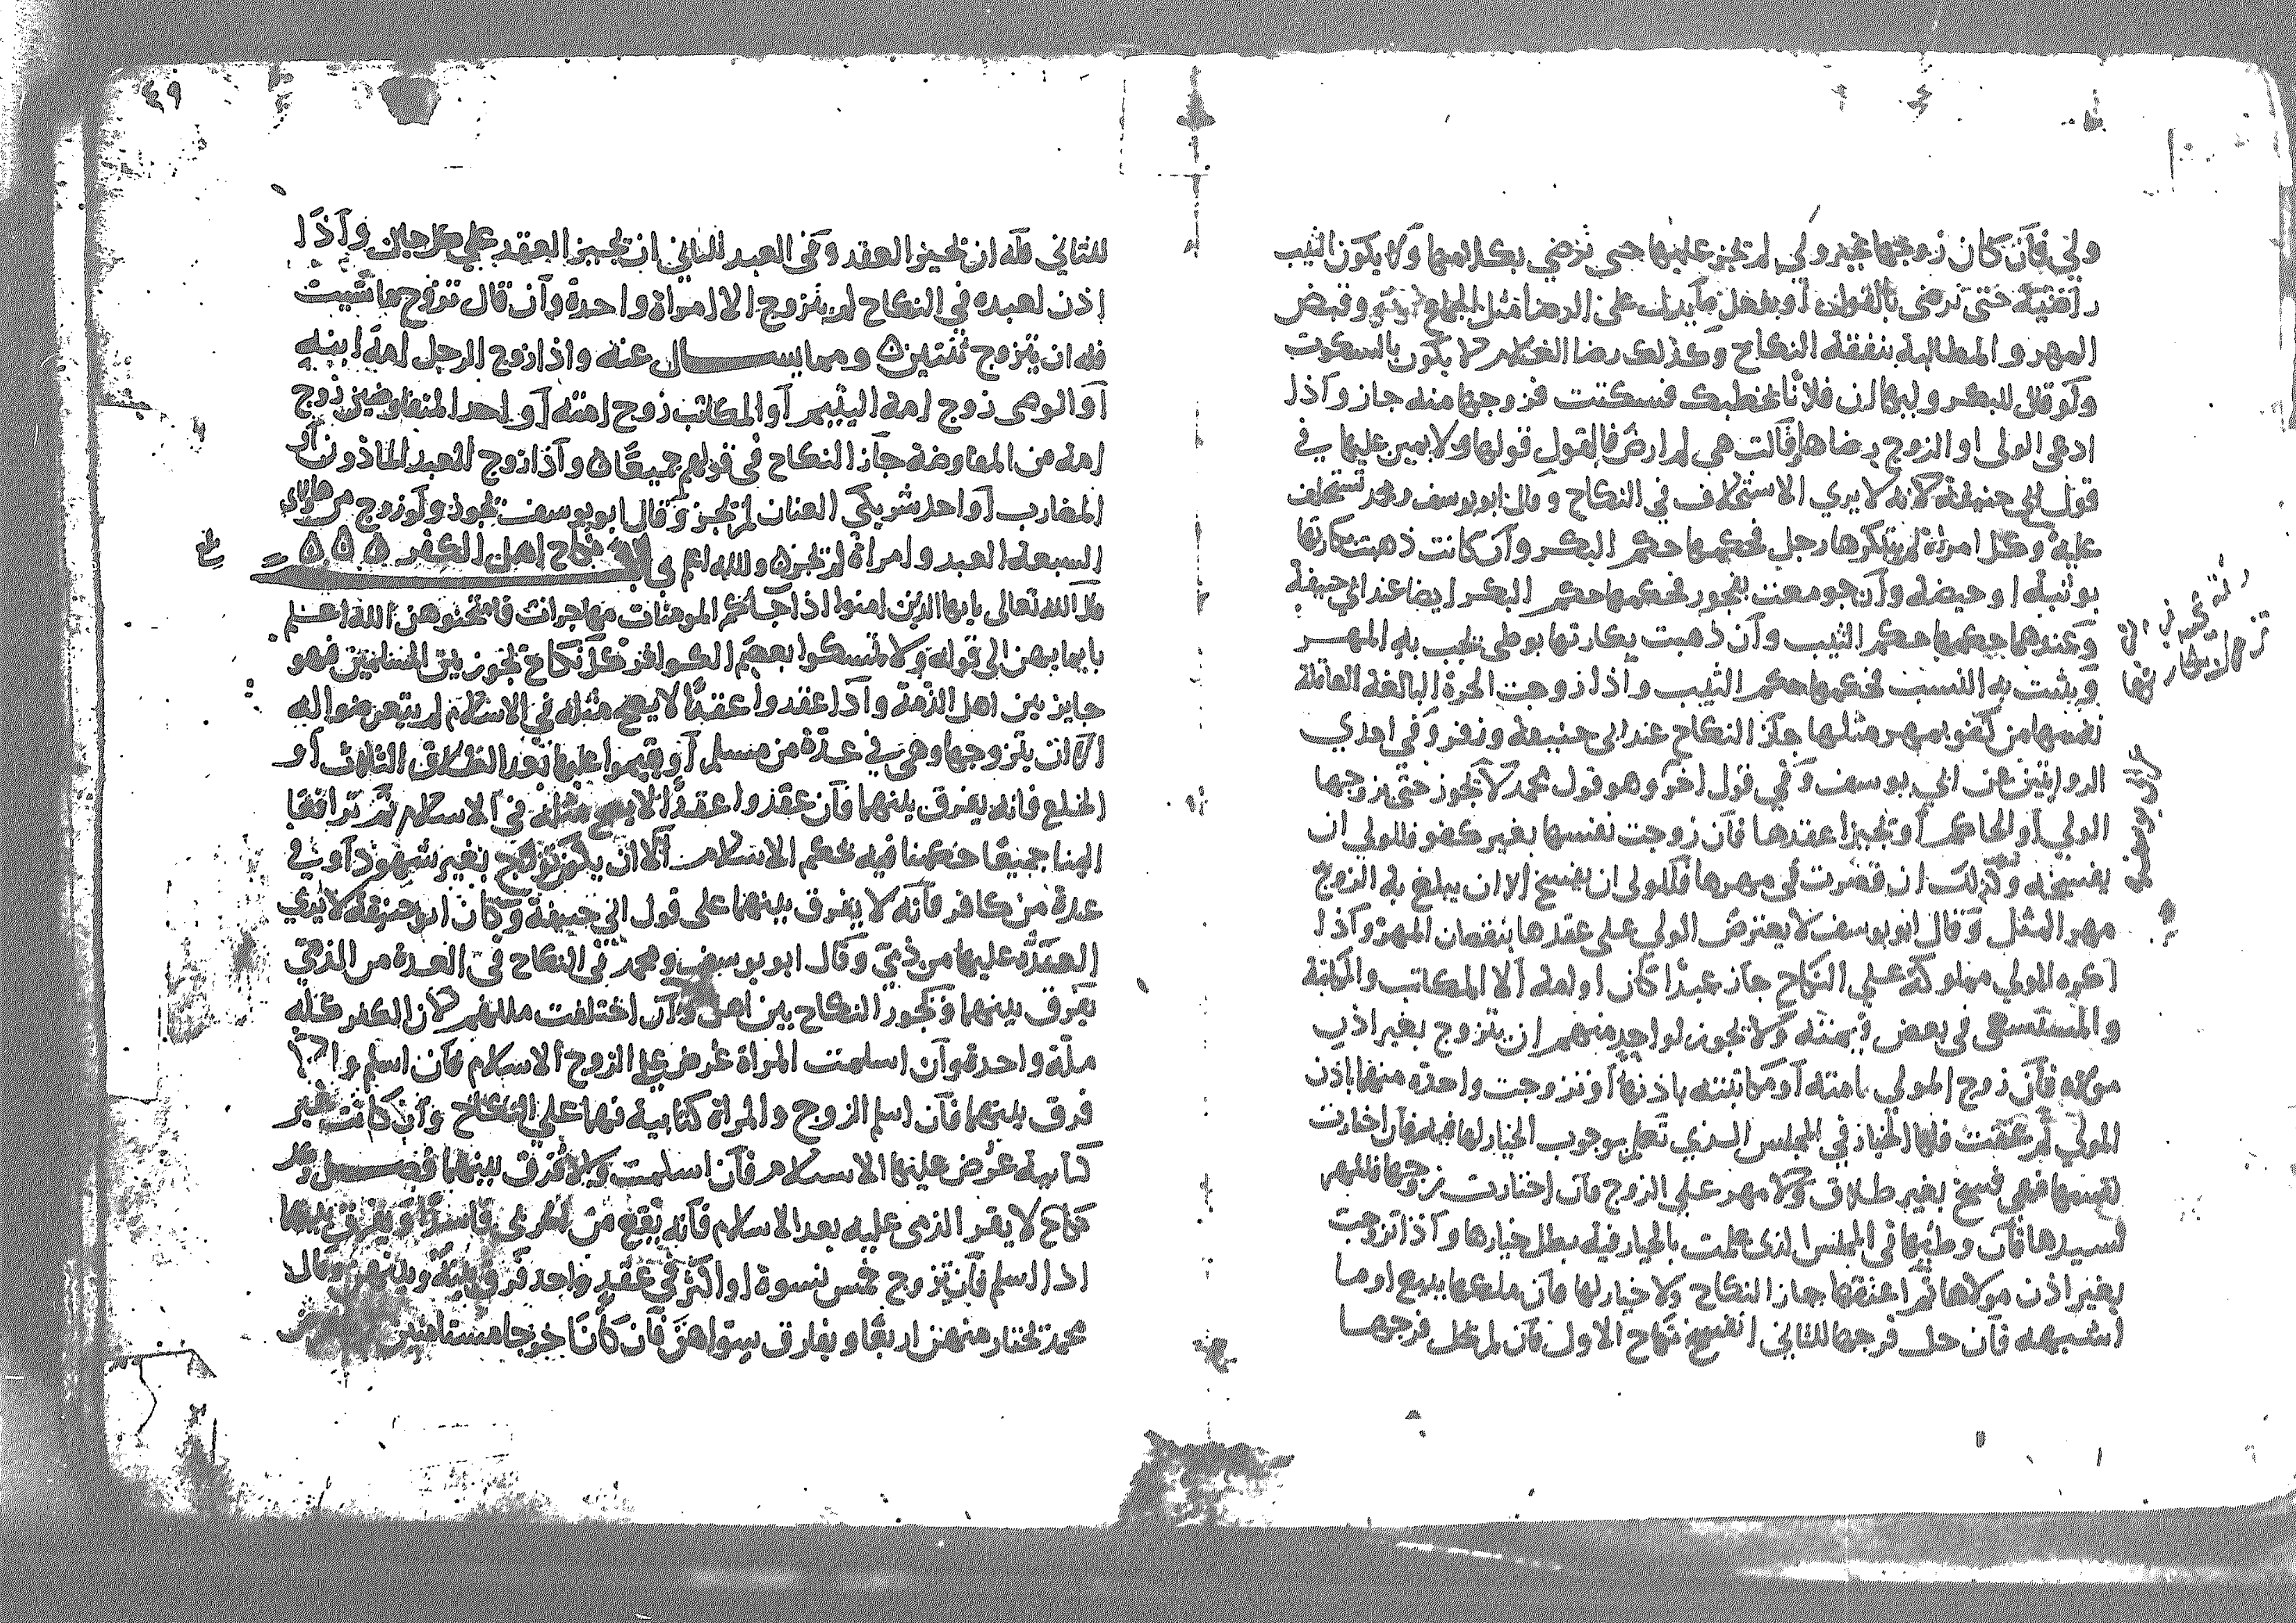 ولي فان كان زوجها غير ولي لم يجز عليها حتى ترضى بكلامها ولا يكون الثيب
راضية حتى ترضى بالقول او بفعل ما يدل على الرضا مثل الجماع وقبض
المهر والمطالبة بنفقة النكاح وكذلك رضا الغلام لا يكون بالسكوت
ولو قال للبكر وليها ان فلانا يخطبك فسكتت فزوجها منه جاز واذا
ادعى الولى او الزوج رضاها وقالت هي لم ارض فالقول قولها ولا يمين عليها في
قول ابي حنيفة لانه لا يري الاستحلاف في النكاح وقال ابو يوسف ومحمد تستحلف
عليه وكل امراة لم يبتكرها رجل فحكمها حكم البكر وان كانت ذهبت بكارتها
بوثبة او حيضة وان جومعت بفجور فحكمها حكم البكر ايضا عند ابي حنيفة
وعندهما حكمها حكم الثيب وان ذهبت بكارتها بوطى يجب به المهر
ويثبت به النسب فحكمها حكم الثيب واذا زوجت الحرة البالغة العاقلة
نفسها من كفو بمهر مثلها جاز النكاح عند ابي حنيفة وزفر وفى احدي
الروايتين عن ابي يوسف وفي قول اخر وهو قول محمد لا يجوز حتى يزوجها
الولي او الحاكم او يجيزا عقدها فان زوجت نفسها بغير كفو فللولي ان
يفسخه وكذلك ان قصرت في مهرها فللولى ان يفسخ الا ان يبلغ به الزوج
مهر المثل وقال ابو يوسف لا يعترض الولي على عقدها بنقصان المهر واذا
اكره المولي مملوكه علي النكاح جاز عبدا كان او امة الا المكاتب والمكاتبة
والمستسعى في بعض قيمته ولا يجوز لواحد منهم ان يتزوج بغير اذن
مولاه فان زوج المولي امته او مكاتبته باذنها او تزوجت واحدة منهما باذن
المولي ثم عتقت فلها الخيار في المجلس الذي تعلم بوجوب الخيار لها فيه فان اختارت
نفسها فهي فسخ بغير طلاق ولا مهر علي الزوج فان اختارت زوجها فالمهر
لسيدها فان وطئها في المجلس الذى علمت بالخيار فيه بطل خيارها واذا تزوجت
بغير اذن مولاها ثم اعتقها جاز النكاح ولا خيار لها فان ملكها ببيع او ما
اشبهه فان حل فرجها للثاني انفسخ نكاح الاول فان لم يحل فرجها
٤٩
للثاني فله ان يجيز العقد وفى العبد للثاني ان يجيز العقد على كل حال واذا
اذن لعبده فى النكاح لم يتزوج الا امراة واحدة وان قال تزوج ما شيت
فله ان يتزوج ثنتين ٥ ومما يسال عنه واذا زوج الرجل امة ابنه
او الوصي زوج امة اليتيم او المكاتب زوج امته او احد المتفاوضين زوج
امة من المفاوضة جاز النكاح في قولهم جميعا ٥ واذا زوج العبد الماذون او
المضارب او احد شريكي العنان لم يجز وقال ابو يوسف يجوز ولو زوج من هاولاى
السبعة العبد وامراة لم يجز ٥ والله اعلم نكاح اهل الكفر ٥٥٥
قال الله تعالى يايها الذين امنوا اذا جاكم المومنات مهاجرات فامتحنوهن الله اعلم
بايمانهن الى قوله ولا تمسكوا بعصم الكوافر كل نكاح يجوز بين المسلمين فهو
جايز بين اهل الذمة واذا عقدوا عقدا لا يصح مثله في الاسلام لم يتعرضوا له
الا ان يتزوجها وهي في عدة من مسلم او يقيموا عليها بعد الطلاق الثلاث او
الخلع فانه يفرق بينهما فان عقدوا عقدا لا يصح مثله في الاسلام ثم ترافعا
الينا جميعا حكمنا فيه بحكم الاسلام الا ان يكون تزوج بغير شهود او في
عدة من كافر فانه لا يفرق بينهما على قول ابي حنيفة وكان ابو حنيفة لا يري
العدة عليها من ذمي وقال ابو يوسف ومحمد في النكاح في العدة من الذمي
يفرق بينهما ويجوز النكاح بين اهل وان اختلفت مللهم لان الكفر كله
ملة واحدة وان اسلمت المراة عرض على الزوج الاسلام فان اسلم والا
فرق بينهما فان اسلم الزوج والمراة كتابية فهما على النكاح وان كانت غير
كتابية عرض عليها الاسلام فان اسلمت والا فرق بينهما فصل وكل
نكاح لا يقر الذمى عليه بعد الاسلام فانه يقع من الحربي فاسدا ويفرق بينهما
اذا اسلم فان تزوج خمس نسوة او اكثر في عقد واحد فرق بينه وبينهن وقال
محمد يختار منهن اربعا ويفارق سواهن فان كانا خرجا مستامنين